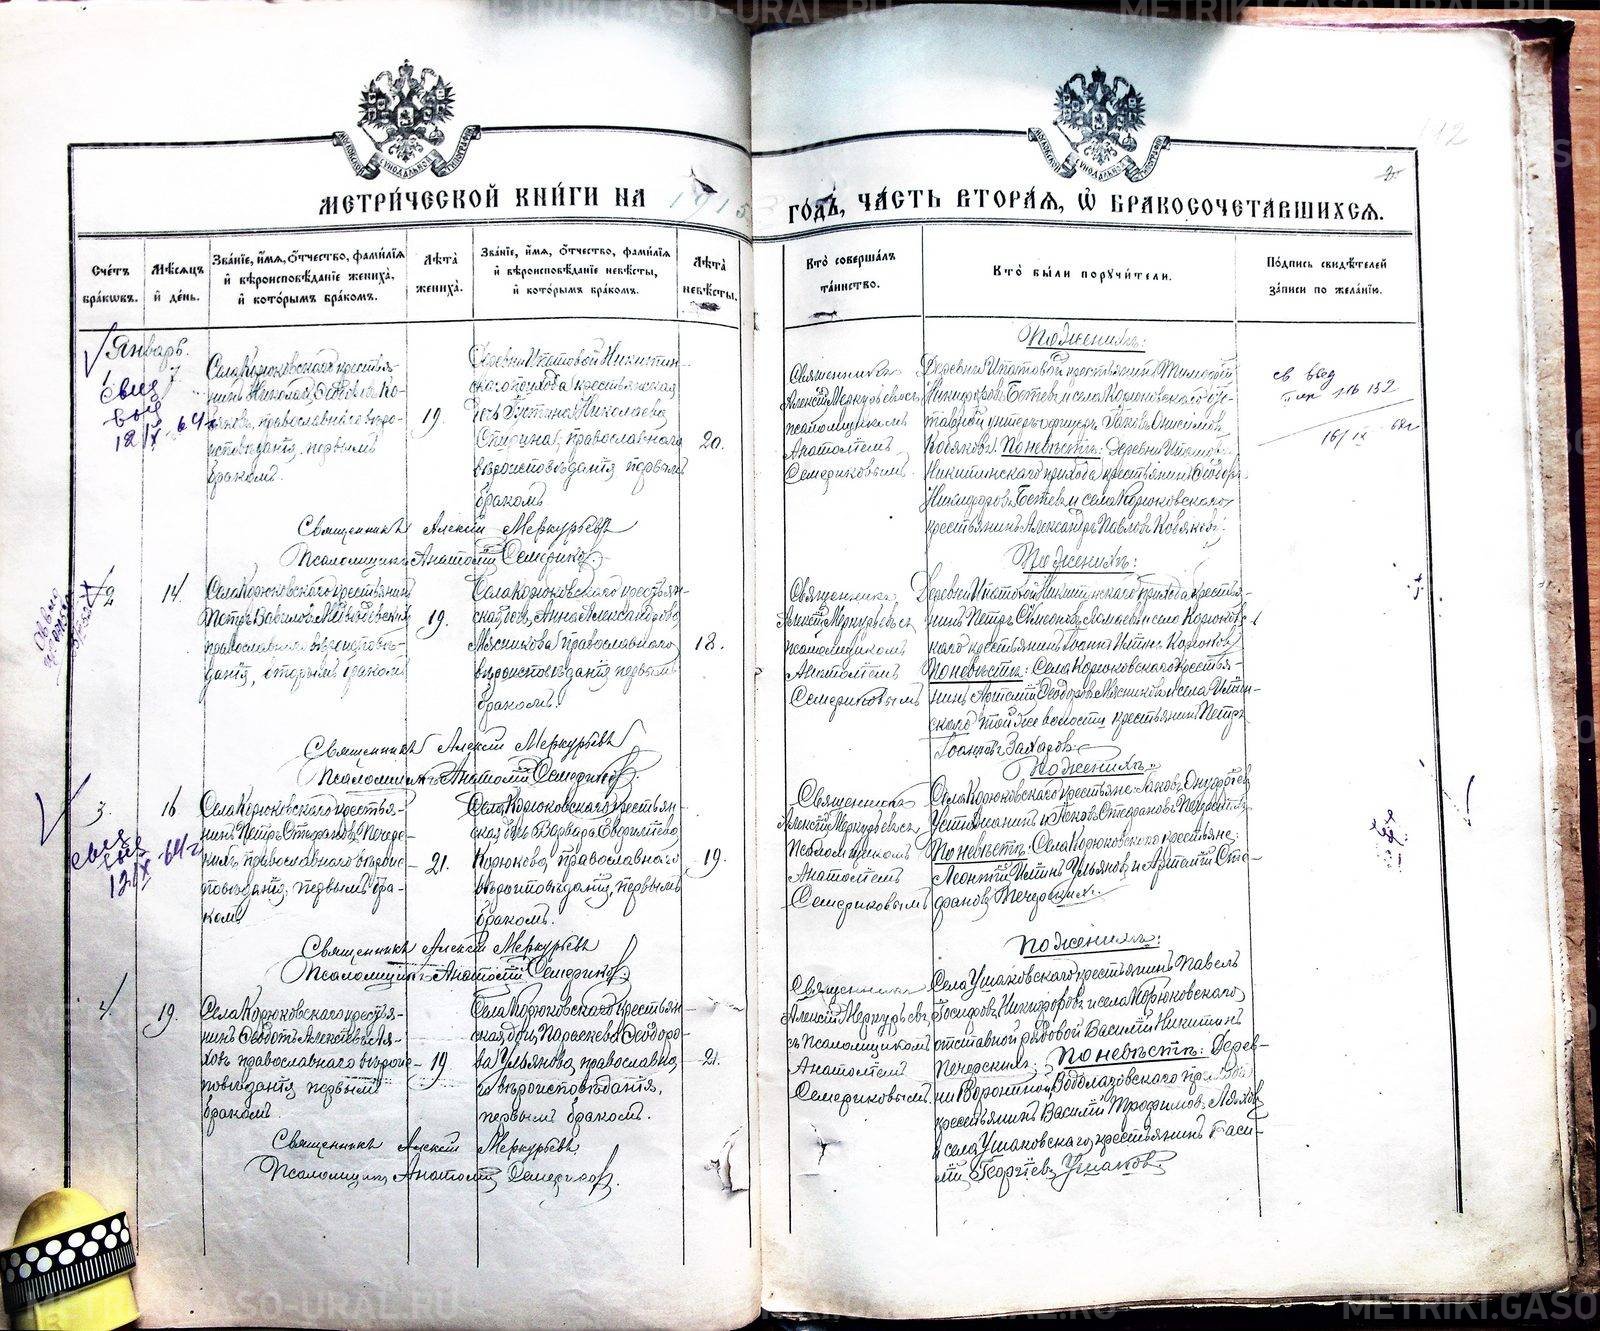 METRIKI.GASO-URAL.RU
METRIKI.GASO-URAL.RU
МЕТРИ́ЧЕСКОЙ КНИ́ГИ НА 1915
ГО́ДЪ, ЧА́СТЬ ВТОРА́Я, Ѽ БРАКОСОЧЕТА́ВШИХСЯ.
112
Сче́тъ бра́ковъ.
Мѣ́сяцъ и҆ де́нь.
Зва́нїе, и҆́мя, ѻ҆́тчество, фами́лїя и҆ вѣроисповѣ́данїе жениха̀, и҆ кото́рымъ бра́комъ.
Лѣ́та жениха̀.
Зва́нїе, и҆́мя, ѻ҆́тчество, фами́лїя и҆ вѣроисповѣ́данїе невѣ́сты, и҆ кото́рымъ бра́комъ.
Лѣ́та невѣ́сты.
Кто̀ соверша́лъ та́инство.
Кто̀ бы́ли порꙋчи́тели.
По́дпись свидѣ́телей за́писи по жела́нїю.
Январь.
1
7
Села Корюковскаго крестья-
нинъ Николай
Ко-
бяковъ, православнаго вѣро-
исповѣданія, первымъ
бракомъ.
19.
Деревни Ипатовой Никитин-
скаго прихода крестьянская
дочь Николаева
Спирина, православнаго
вѣроисповѣданія первымъ
бракомъ
20.
Священникъ
Алексій Меркурьевъ съ
псаломщикомъ
Анатоліемъ
Семериковымъ.
По женихѣ:
Деревни Ипатовой крестьянинъ Тимофей
Никифоровъ Бетевъ и села Корюковскаго от-
ставной унтеръ-офицеръ Яковъ Онисимовъ
Кобяковъ. По невѣстѣ: Деревни Ипатовой
Никитинскаго прихода крестьянинъ Ѳеодоръ
Никифоровъ Бетевъ и села Корюковскаго
крестьянинъ Александръ Павловъ Кобяковъ.
св выд
152
16/IX 64г
свид
выд
12/IX-64г
Священникъ Алексій Меркурьевъ
Псаломщикъ Анатолій Семериковъ.
2
14.
Села Корюковскаго крестьянинъ
Петръ Вавиловъ
православнаго вѣроисповѣ-
данія, вторымъ бракомъ
19.
Села Корюковскаго крестьян-
ская дочь Анна Александрова
Мясникова православнаго
вѣроисповѣданія первымъ
бракомъ.
18.
Священникъ
Алексій Меркурьевъ съ
псаломщикомъ
Анатоліемъ
Семериковымъ
По женихѣ:
Деревни Ипатовой Никитинскаго прихода крестья-
нинъ Петръ Симеоновъ и села Корюков-
скаго крестьянинъ Іоаннъ Ильинъ Корюковъ
По невѣстѣ: Села Корюковскаго крестья-
нинъ Артемій Ѳеодоровъ Мясниковъ и села Ильин-
скаго той же волости крестьянинъ Петръ
Іоанновъ Захаровъ.
Священникъ Алексій Меркурьевъ
Псаломщикъ Анатолій Семериковъ.
3.
16
Села Корюковскаго крестья-
нинъ Петръ Стефановъ Печер-
скихъ, православнаго вѣроис-
повѣданія, первымъ бра-
комъ
21.
Села Корюковскаго крестьян-
ская дочь Варвара Евфиміева
Корюкова, православнаго
вѣроисповѣданія, первымъ
бракомъ.
19.
Священникъ
Алексій Меркурьевъ съ
Псаломщикомъ
Анатоліемъ
Семериковымъ
По женихѣ:
Села Корюковскаго крестьяне: Іаковъ Онуфріевъ
Устьянинъ и Іаковъ Стефановъ Печерскихъ
По невѣстѣ: Села Корюковскаго крестьяне:
Леонтій Ильинъ Ульяновъ и Артемій Сте-
фановъ Печерскихъ.
свид
выд
12/IX-64г
Священникъ Алексій Меркурьевъ
Псаломщикъ Анатолій Семериковъ.
4.
19.
Села Корюковскаго крестья-
нинъ Ѳеодотъ Алексѣевъ Ля-
ховъ православнаго вѣроис-
повѣданія первымъ
бракомъ.
19
Села Корюковскаго крестьян-
ская дочь Параскева Ѳеодоро-
ва Ульянова, православна-
го вѣроисповѣданія,
первымъ бракомъ.
21.
Священникъ
Алексій Меркурьевъ,
съ Псаломщикомъ
Анатоліемъ
Семериковымъ.
По женихѣ:
Села Ушаковскаго крестьянинъ Павелъ
Іосифовъ Никифоровъ и села Корюковскаго
отставной рядовой Василій Никитинъ
Печерскихъ; По невѣстѣ: Дерев-
ни Ворониной, Водолазовскаго прихода
крестьянинъ Василій Трофимовъ Ляховъ
и села Ушаковскаго крестьянинъ Васи-
лій Георгіевъ Ушаковъ
Священникъ Алексій Меркурьевъ
Псаломщикъ Анатолій Семериковъ.
METRIKI.GASO-URAL.RU
METRIKI.GASO-URAL.RU
METRIKI.GASO